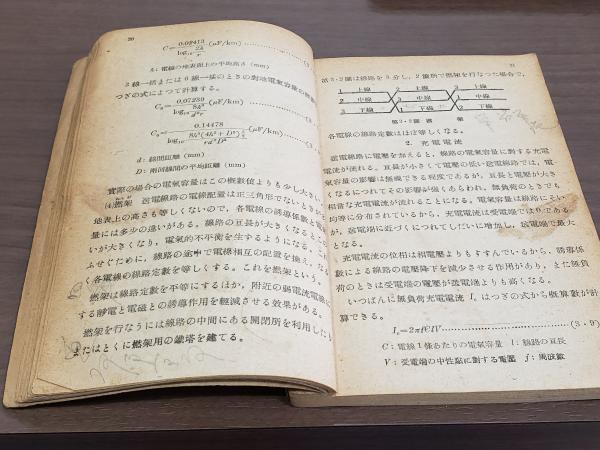 20
C = 0.02413 / log₁₀ 2h/r (μF/km)
h: 電線の地表面上の平均高さ (mm)
3線一括または6線一括のときの對地電氣容量の
つぎの式によつて計算する。
C₃ = 0.07239 / log₁₀ 8h³/rd² (μF/km)
C₆ = 0.14478 / log₁₀ 8h³(4h²+D²)/rd²D³ (μF/km)
d: 線間距離 (mm)
D: 兩回線間の平均距離 (mm)
實際の場合の電氣容量はこの概數値よりも少し大きい。
(4)撚架 送電線路の電線配置は正三角形でないときが
地表上の高さも等しくないので、各電線の誘導係數と電
量には多少の違いがある。線路の亘長が大きくなるとこの
いが大きくなり、電氣的不平衡を生するようになる。これ
ふせぐために、線路の途中で電線相互の配置を換え、なる
く各電線の線路定數を等しくする。これを撚架という。
撚架は線路定數を平等にするほか、附近の弱電流電線に
する靜電と電磁との誘導作用を輕減させる效果がある。
撚架を行なうには線路の中間にある開閉所を利用したり
またはとくに撚架用の鐵塔を建てる。
21
第3・2圖は線路を3分し、2箇所で撚架を行なつた場合で、
1 上線 3 上線 2 上線
2 中線 1 中線 3 中線
3 下線 2 下線 1 下線
第3・2圖 撚架
各電線の線路定數はほぼ等しくなる。
2. 充電電流
送電線路に電壓を加えると、線路の電氣容量に對する充電
電流が流れる。亘長が小さくて電壓の低い送電線路では、電
氣容量の影響は無視できる程度であるが、亘長と電壓が大き
くなるにつれてその影響が強くあらわれ、無負荷のときでも
相當な充電電流が流れることになる。電氣容量は線路にそい
均等に分布されているから、充電電流は受電端では0である
が、送電端に近づくにつれてしだいに増加し、送電端で最大
となる。
充電電流の位相は相電壓よりもすすんでいるから、誘導係
數による線路の電壓降下を減少させる作用があり、また無負
荷のときは受電端の電壓が送電端よりも高くなる。
いつぱんに無負荷充電電流 Iₛ はつぎの式から概算數が計
算できる。
Iₛ=2πflCV (3・9)
C: 電線1條あたりの電氣容量 l: 線路の亘長
V: 受電端の中性點に對する電壓 f: 周波數